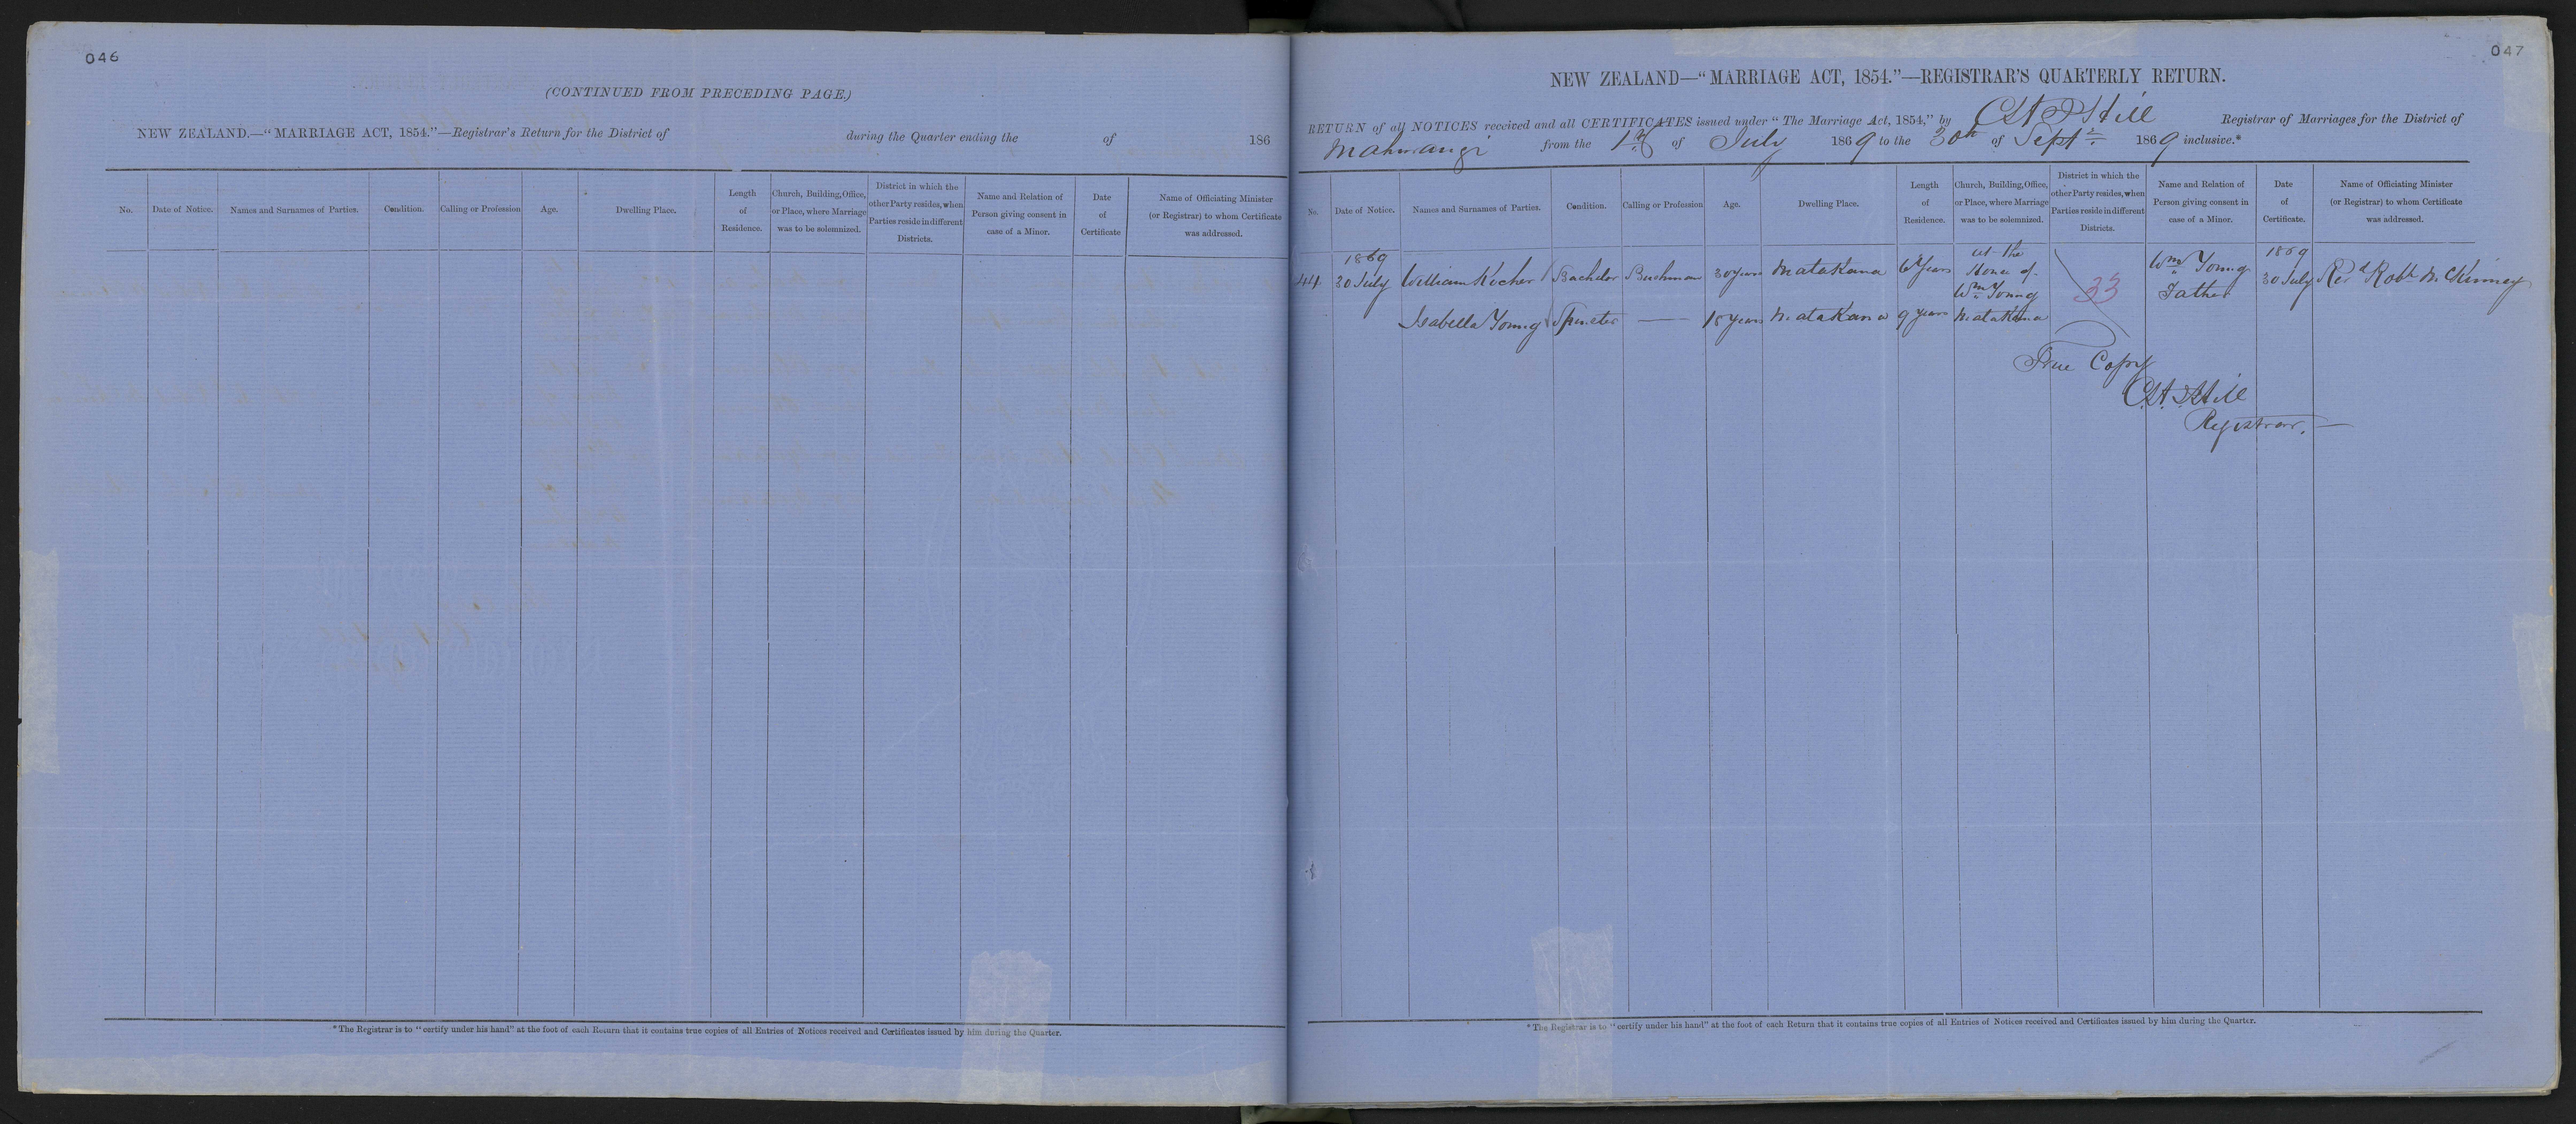 046
(CONTINUED FROM PRECEDING PAGE.)
NEW ZEALAND.—"MARRIAGE ACT, 1854."—Registrar's Return for the District of during the Quarter ending the of 186
No. Date of Notice. Names and Surnames of Parties. Condition. Calling or Profession Age. Dwelling Place. Length of Residence. Church, Building, Office, or Place, where Marriage was to be solemnized. District in which the other Party resides, when Parties reside in different Districts. Name and Relation of Person giving consent in case of a Minor. Date of Certificate Name of Officiating Minister (or Registrar) to whom Certificate was addressed.
*The Registrar is to "certify under his hand" at the foot of each Return that it contains true copies of all Entries of Notices received and Certificates issued by him during the Quarter.
047
NEW ZEALAND—"MARRIAGE ACT, 1854."—REGISTRAR'S QUARTERLY RETURN.
RETURN of all NOTICES received and all CERTIFICATES issued under "The Marriage Act, 1854," by Registrar of Marriages for the District of
Mahurangi from the 1st of July 1869 to the 30th of Sept. 1869 inclusive.*
No. Date of Notice. Names and Surnames of Parties. Condition. Calling or Profession Age. Dwelling Place. Length of Residence. Church, Building, Office, or Place, where Marriage was to be solemnized. District in which the other Party resides, when Parties reside in different Districts. Name and Relation of Person giving consent in case of a Minor. Date of Certificate. Name of Officiating Minister (or Registrar) to whom Certificate was addressed.
1869 at the 1869
44 30 July William Bachelor Bushman 30 years Matakana 6 Years House of Wm Young 33 Wm Young Father 30 July Revd Robt McKinney
Isabella Young Spinster — 18 Years Matakana 9 years Matakana
True Copy
Registrar.—
*The Registrar is to "certify under his hand" at the foot of each Return that it contains true copies of all Entries of Notices received and Certificates issued by him during the Quarter.